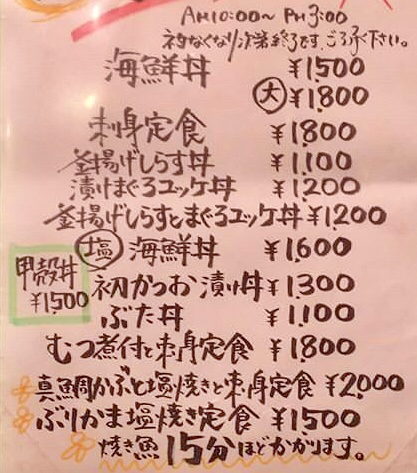 AM10:00〜PM3:00
ネタなくなり次第終了です、ご了承下さい。
海鮮丼 ¥1500
大 ¥1800
刺身定食 ¥1800
釜揚げしらす丼 ¥1100
漬けまぐろユッケ丼 ¥1200
釜揚げしらすとまぐろユッケ丼 ¥1200
塩 海鮮丼 ¥1600
甲殻丼
¥1500
初かつお漬け丼 ¥1300
ぶた丼 ¥1100
むつ煮付と刺身定食 ¥1800
真鯛かぶと塩焼きと刺身定食 ¥2000
ぶりかま塩焼き定食 ¥1500
焼き魚15分ほどかかります。